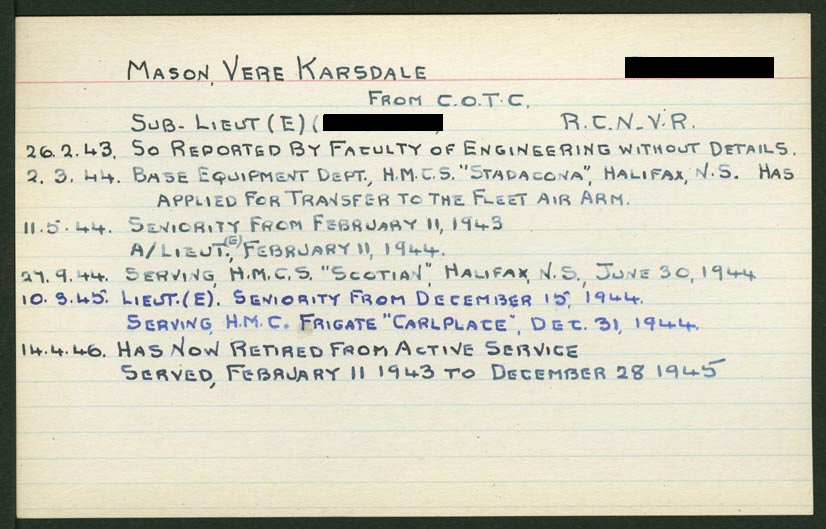 MASON, VERE KARSDALE
FROM C.O.T.C.
SUB-LIEUT (E) ( R.C.N.V.R.
26.2.43. SO REPORTED BY FACULTY OF ENGINEERING WITHOUT DETAILS.
2.3.44. BASE EQUIPMENT DEPT., H.M.C.S. "STADACONA", HALIFAX, N.S. HAS
APPLIED FOR TRANSFER TO THE FLEET AIR ARM.
11.5.44. SENIORITY FROM FEBRUARY 11, 1943
A/LIEUT.(E), FEBRUARY 11, 1944.
27.9.44. SERVING, H.M.C.S. "SCOTIAN", HALIFAX, N.S., JUNE 30, 1944
10.3.45. LIEUT.(E). SENIORITY FROM DECEMBER 15, 1944.
SERVING, H.M.C. FRIGATE "CARLPLACE", DEC. 31, 1944.
14.4.46. HAS NOW RETIRED FROM ACTIVE SERVICE
SERVED, FEBRUARY 11 1943 TO DECEMBER 28 1945